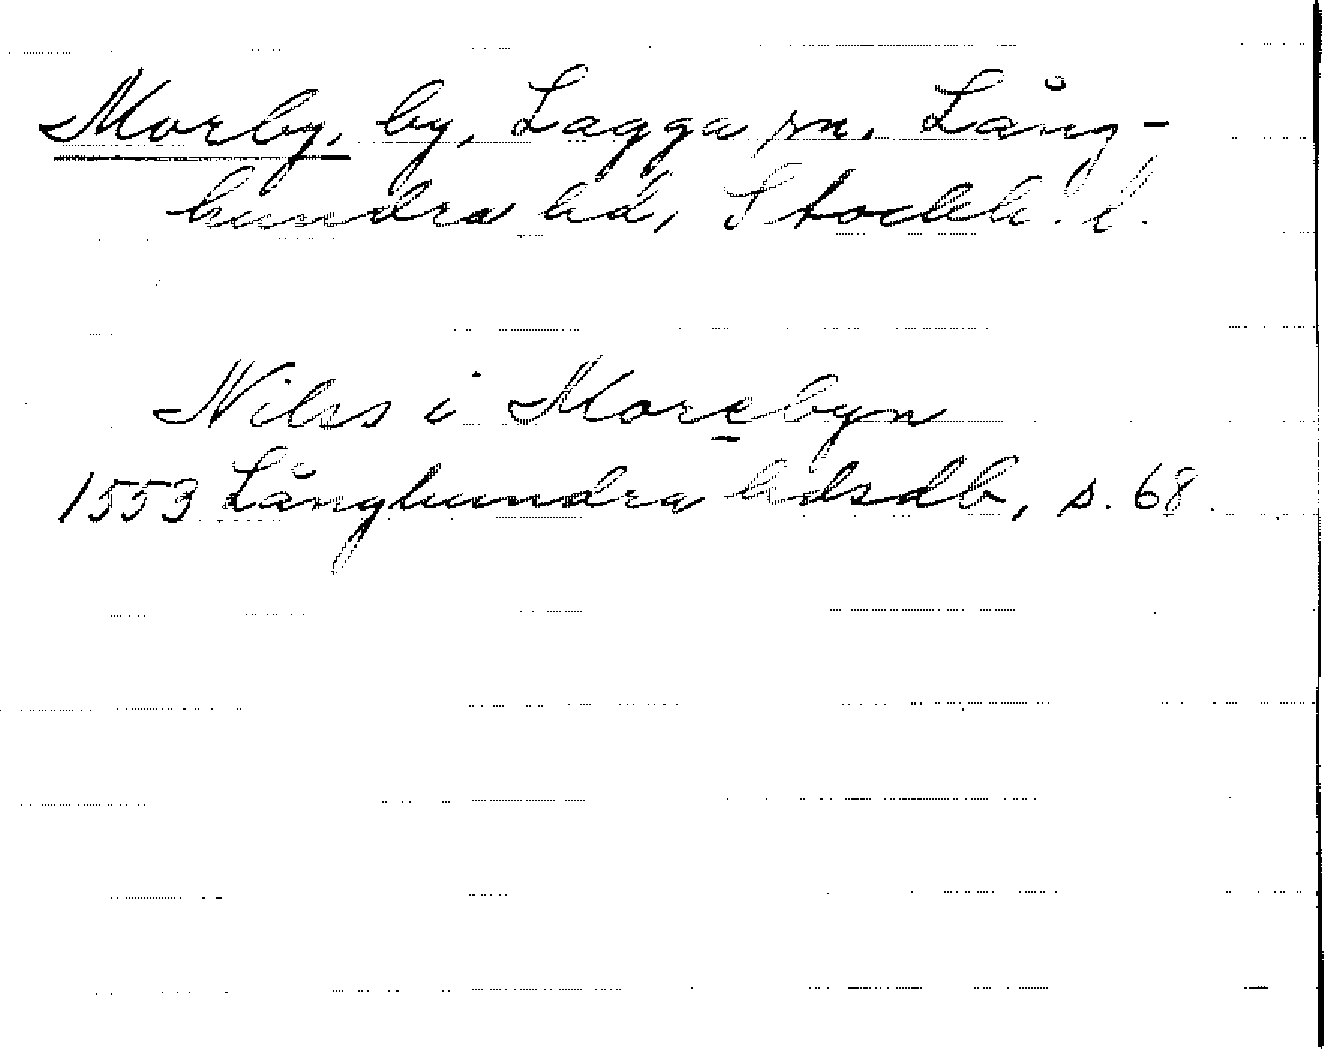 Morby, by, Lagga sn, Lång-
hundra hd, Stockh. l.
Nilss i Morebyn
1553 Långhundra hdsdb, s. 68.